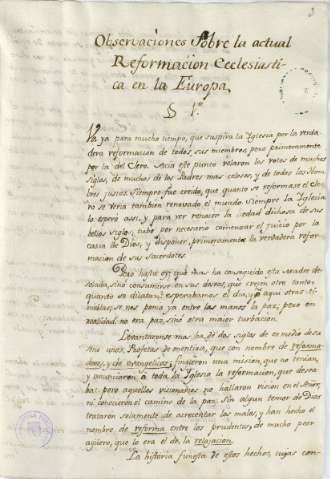 Observaciones Sobre la actual
Reformacion Ecclesiasti-
ca en la Europa,
§ 1º
Va ya para mucho tiempo, que suspira la Iglesia por la verda-
dera reformacion de todos sus miembros, pero primeramente
por la del Clero. Acia este punto volaron los votos de muchos
siglos, de muchos de los Padres mas celosos, y de todos los Hom-
bres justos. Siempre fue creido, que quanto se reformase el Clero
se veria tambien renovado el mundo. Siempre la Iglesia
lo esperó assi, y para ver renacer la edad dichosa de sus
bellos siglos, tubo por necesario comenzar el juicio por la
casa de Dios, y disponer, primeramente la verdadera refor-
macion de sus sacerdotes.
Pero hasta oy que mas ha conseguido esta Madre de-
solada, sino consumirse en sus deseos, que crecen otro tanto,
quanto se dilatan? esperabamos el
se nos ponia ya entre las manos la paz; pero en
realidad no era paz, sino otra mayor turbacion.
Levantaronse mas ha de dos siglos en medio de
sino unos Profetas de mentira, que con nombre de reforma-
dores, y de evangelicos, fingieron una mision, que no tenian,
y anunciaron á toda la Iglesia la reformacion, que desea-
ba: pero aquellos visionarios no hallaron vision en el Señor,
ni conocieron el camino de la paz. Sin algun temor de Dios
trataron solamente de acrecentar los males, y han hecho el
nombre de reforma entre los prudentes, de mucho peor
aguero, que lo era el de la relajacion.
La historia funesta de estos hechos, cuyas con-